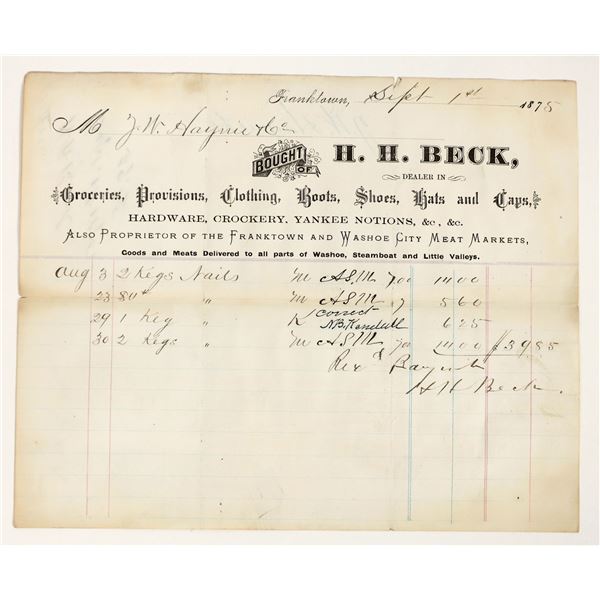 Franktown, Sept 1st 1875
M J. W. Haynie & Co
BOUGHT OF H. H. BECK,
DEALER IN
Groceries, Provisions, Clothing, Boots, Shoes, Hats and Caps,
HARDWARE, CROCKERY, YANKEE NOTIONS, &c., &c.
ALSO PROPRIETOR OF THE FRANKTOWN AND WASHOE CITY MEAT MARKETS,
Goods and Meats Delivered to all parts of Washoe, Steamboat and Little Valleys.
Aug 3 2 Kegs Nails M A S M 7 00 14 00
23 80# " M A S M 7 5 60
29 1 Keg " K correct N.B. Kendall 6 25
30 2 Kegs " M A S M 7 00 14 00 $39 85
Rec'd Payment
H H Beck.